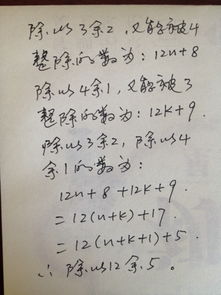 除以3余2,又能被4
整除的数为:12n+8
除以4余1,又能被3
整除的数为:12k+9.
∴除以3余2,除以4
余1的数为:
12n+8+12k+9.
=12(n+k)+17.
=12(n+k+1)+5.
∴除以12余5。